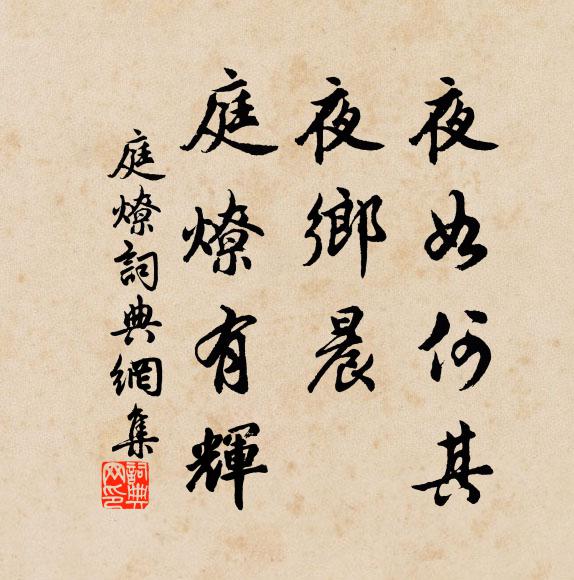 夜如何其
夜鄉晨
庭燎有輝
庭燎詞典網集
詞典网印